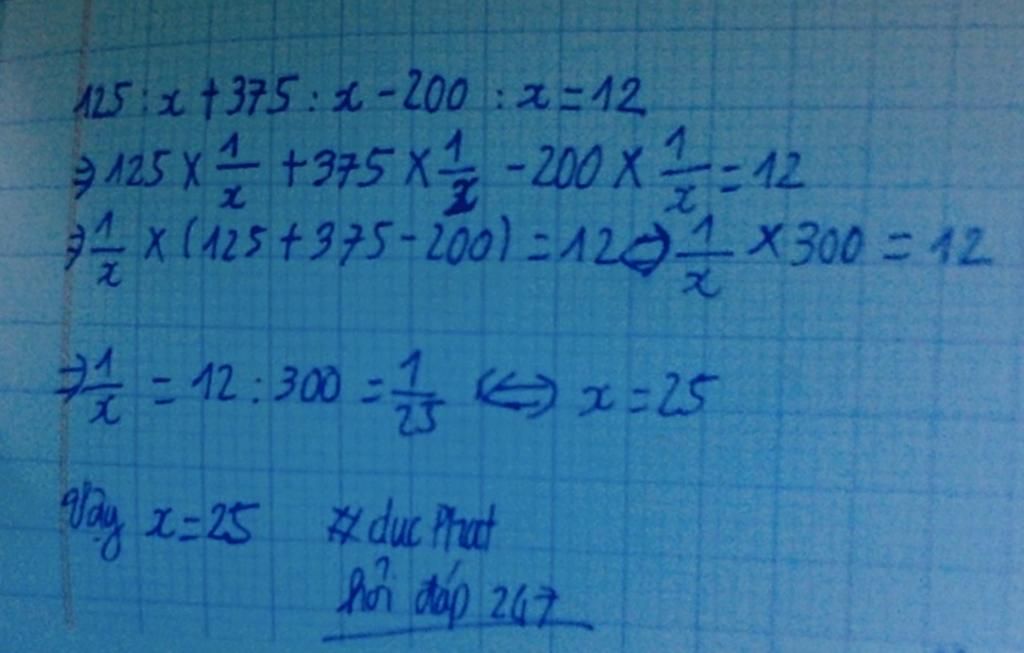 125 : x + 375 : x - 200 : x = 12
⇒ 125 × 1/x + 375 × 1/x - 200 × 1/x = 12
⇒ 1/x × (125 + 375 - 200) = 12 ⇔ 1/x × 300 = 12
⇒ 1/x = 12 : 300 = 1/25 ⇔ x = 25
Vậy x = 25 # duc Phat
hỏi đáp 247